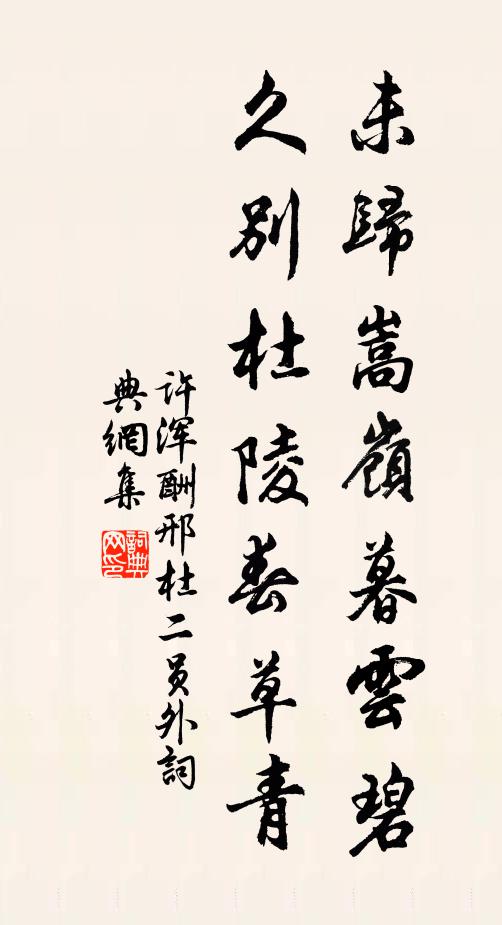 未歸嵩嶺暮雲碧
久別杜陵春草青
许浑酬邢杜二员外詞
典網集
詞典网印